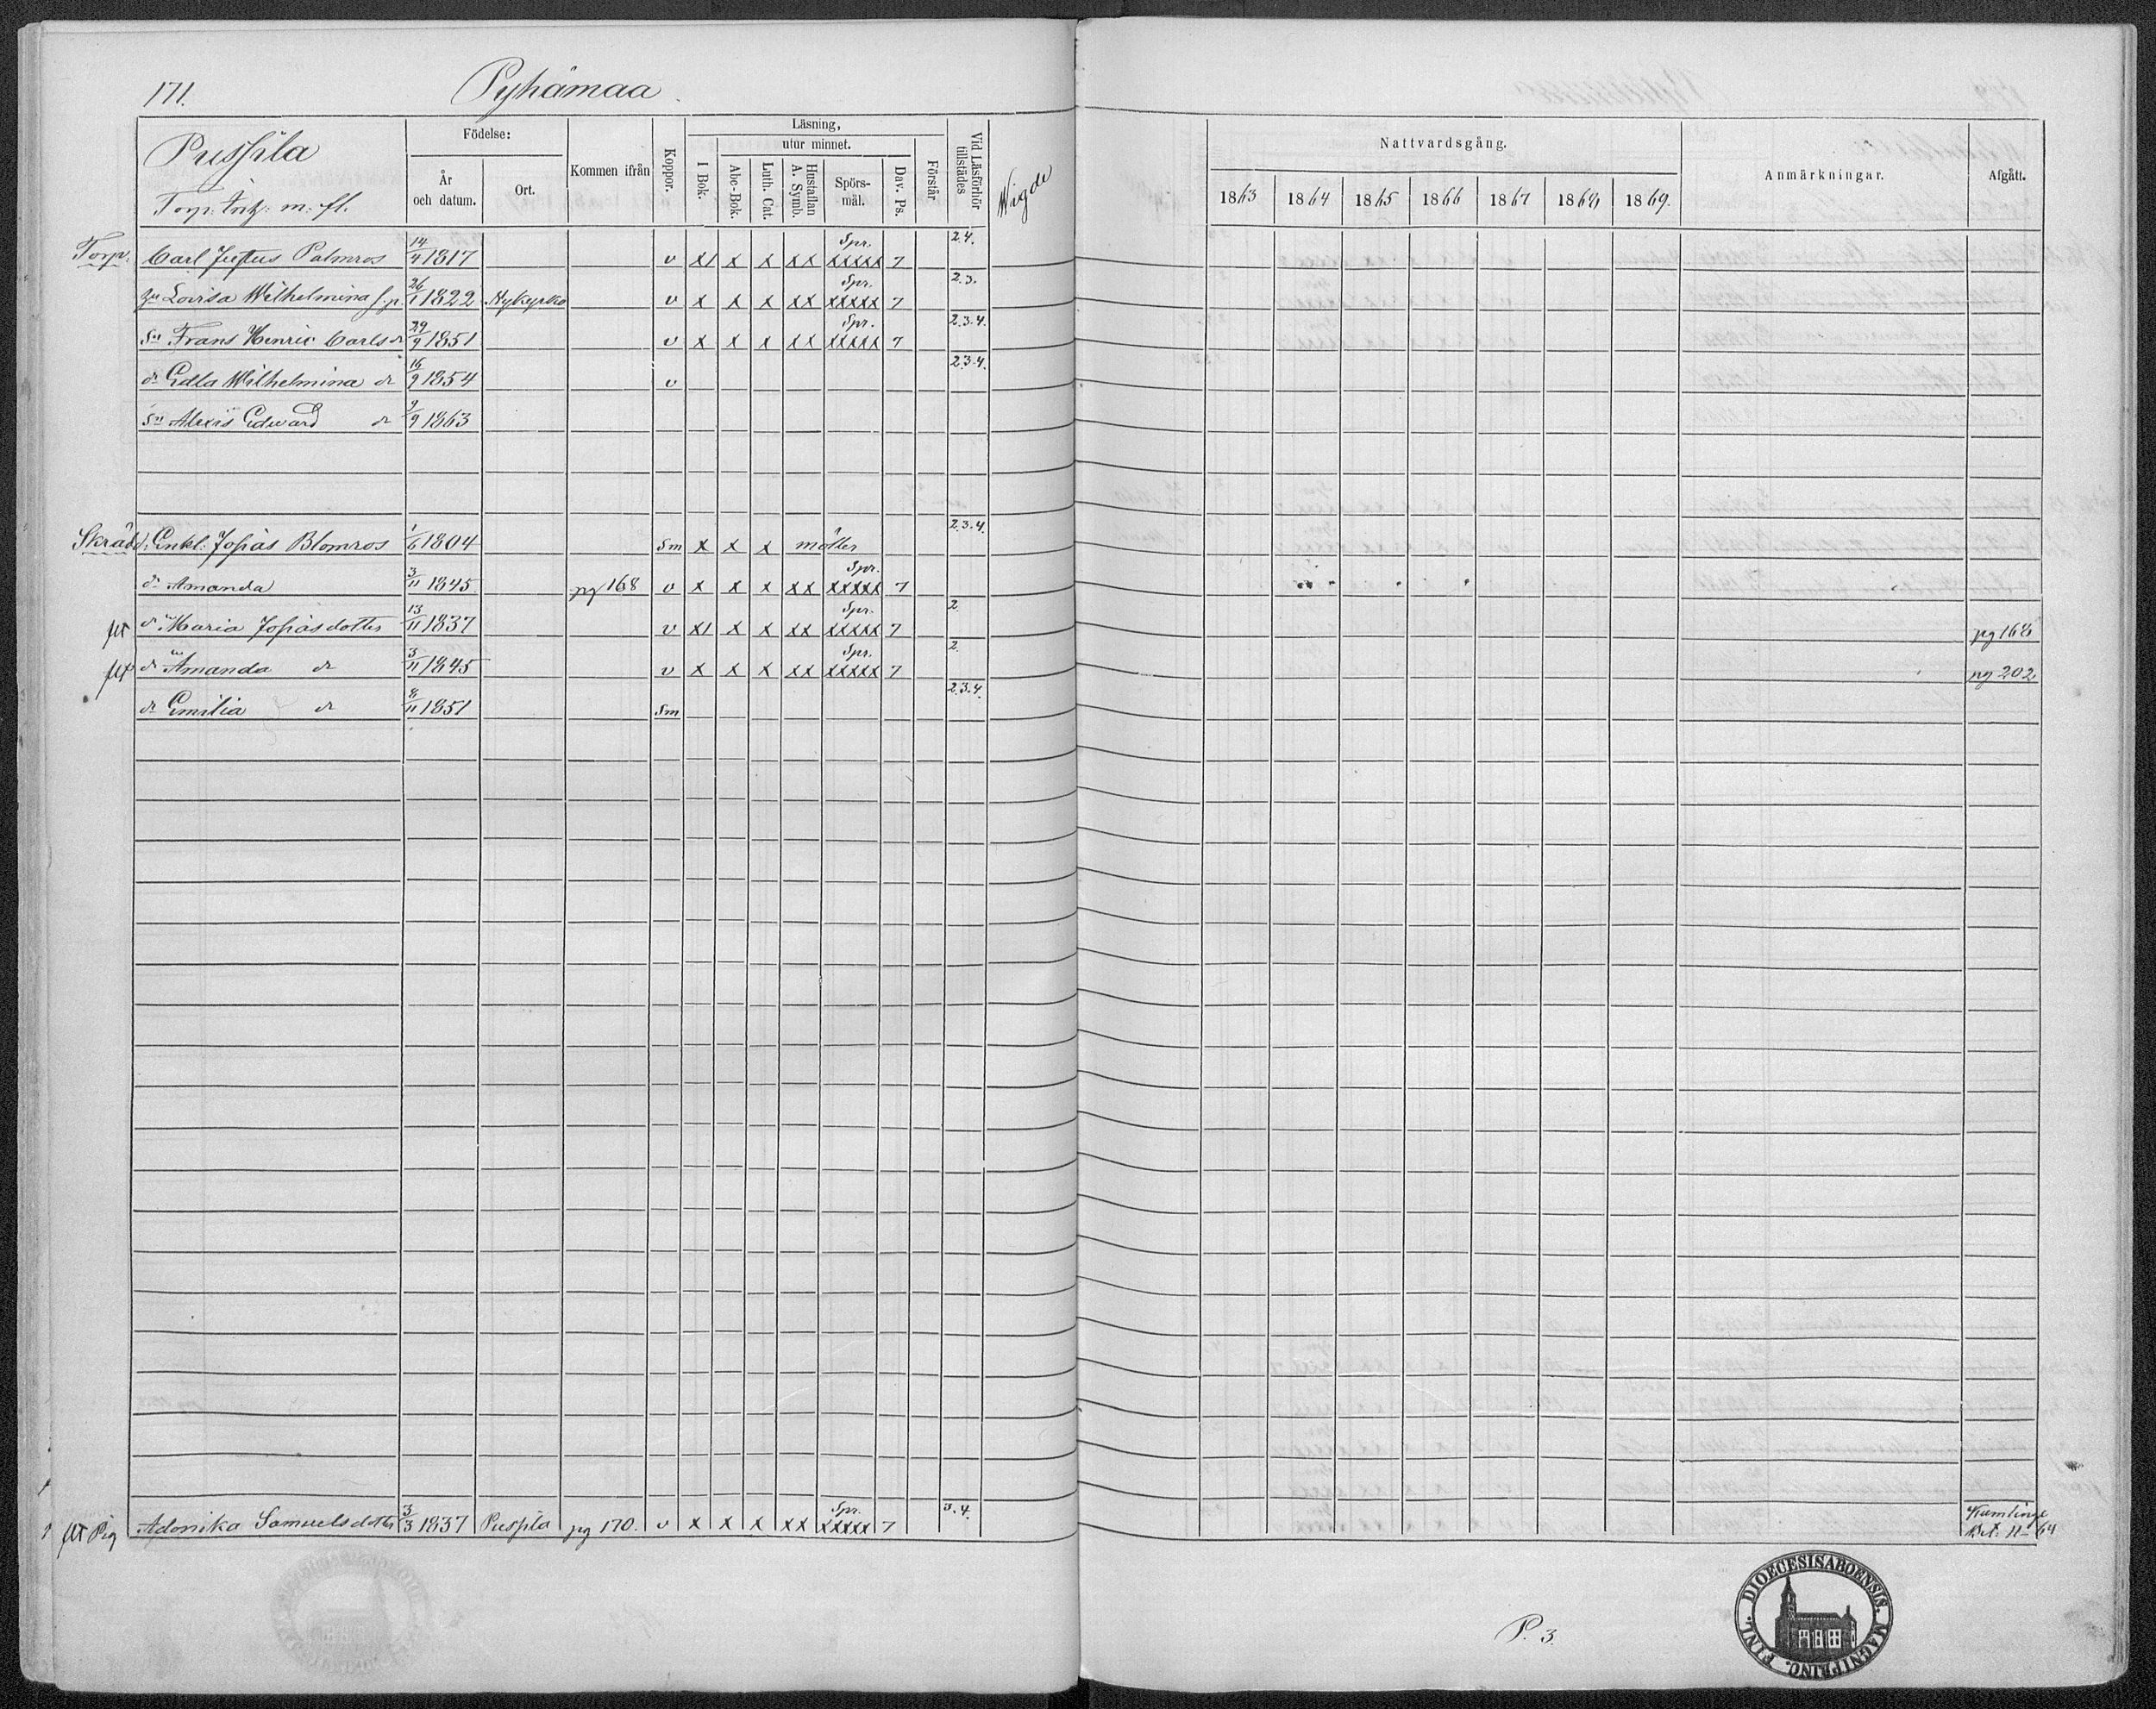 171. Pyhämaa
Puspila
Torp: Inh: m. fl.
Födelse:
År och datum.
Ort.
Kommen ifrån
Koppor.
Läsning,
utur minnet.
I Bok.
Abc-Bok.
Luth. Cat.
Hustaflan A. Symb.
Spörs- mål.
Dav. Ps.
Förstår
Vid Läsförhör tillstädes
Wigde
Nattvardsgång.
1863 1864 1865 1866 1867 1868 1869.
Anmärkningar.
Afgått.
Torp. Carl Justus Palmros 14/4 1817 v x1 x x xx Spr. xxxxx 7 2.4.
Lovisa Wilhelmina 26/1 1822 Nykyrko v x x x xx Spr. xxxxx 7 2.3.
Sn Frans Henric Carls 29/9 1851 v x x x xx Spr. xxxxx 7 2.3.4.
dr Edla Wilhelmina dr 16/9 1854 v 2.3.4.
Sn Alexis Edward dr 9/9 1863
Skrädd. Enkl: Josias Blomros 1/6 1804 Sm x x x 2.3.4.
dr Amanda 3/11 1845 pg 168 v x x x xx Spr. xxxxx 7
flt dr Maria Josiasdotter 13/11 1837 v x1 x x xx Spr. xxxxx 7 2. pg 168
flt dr Amanda dr 3/11 1845 v x x x xx Spr. xxxxx 7 2. pg 202
dr Emilia dr 8/11 1851 Sm 2.3.4.
flt Pig Adonika Samuelsdotter 3/3 1837 Puspila pg 170. v x x x xx Spr. xxxxx 7 3.4. Kumlinge Bet. 11 64
P. 3.
FINL. DIOECESIS ABOENSIS. MAGNI PRINC.